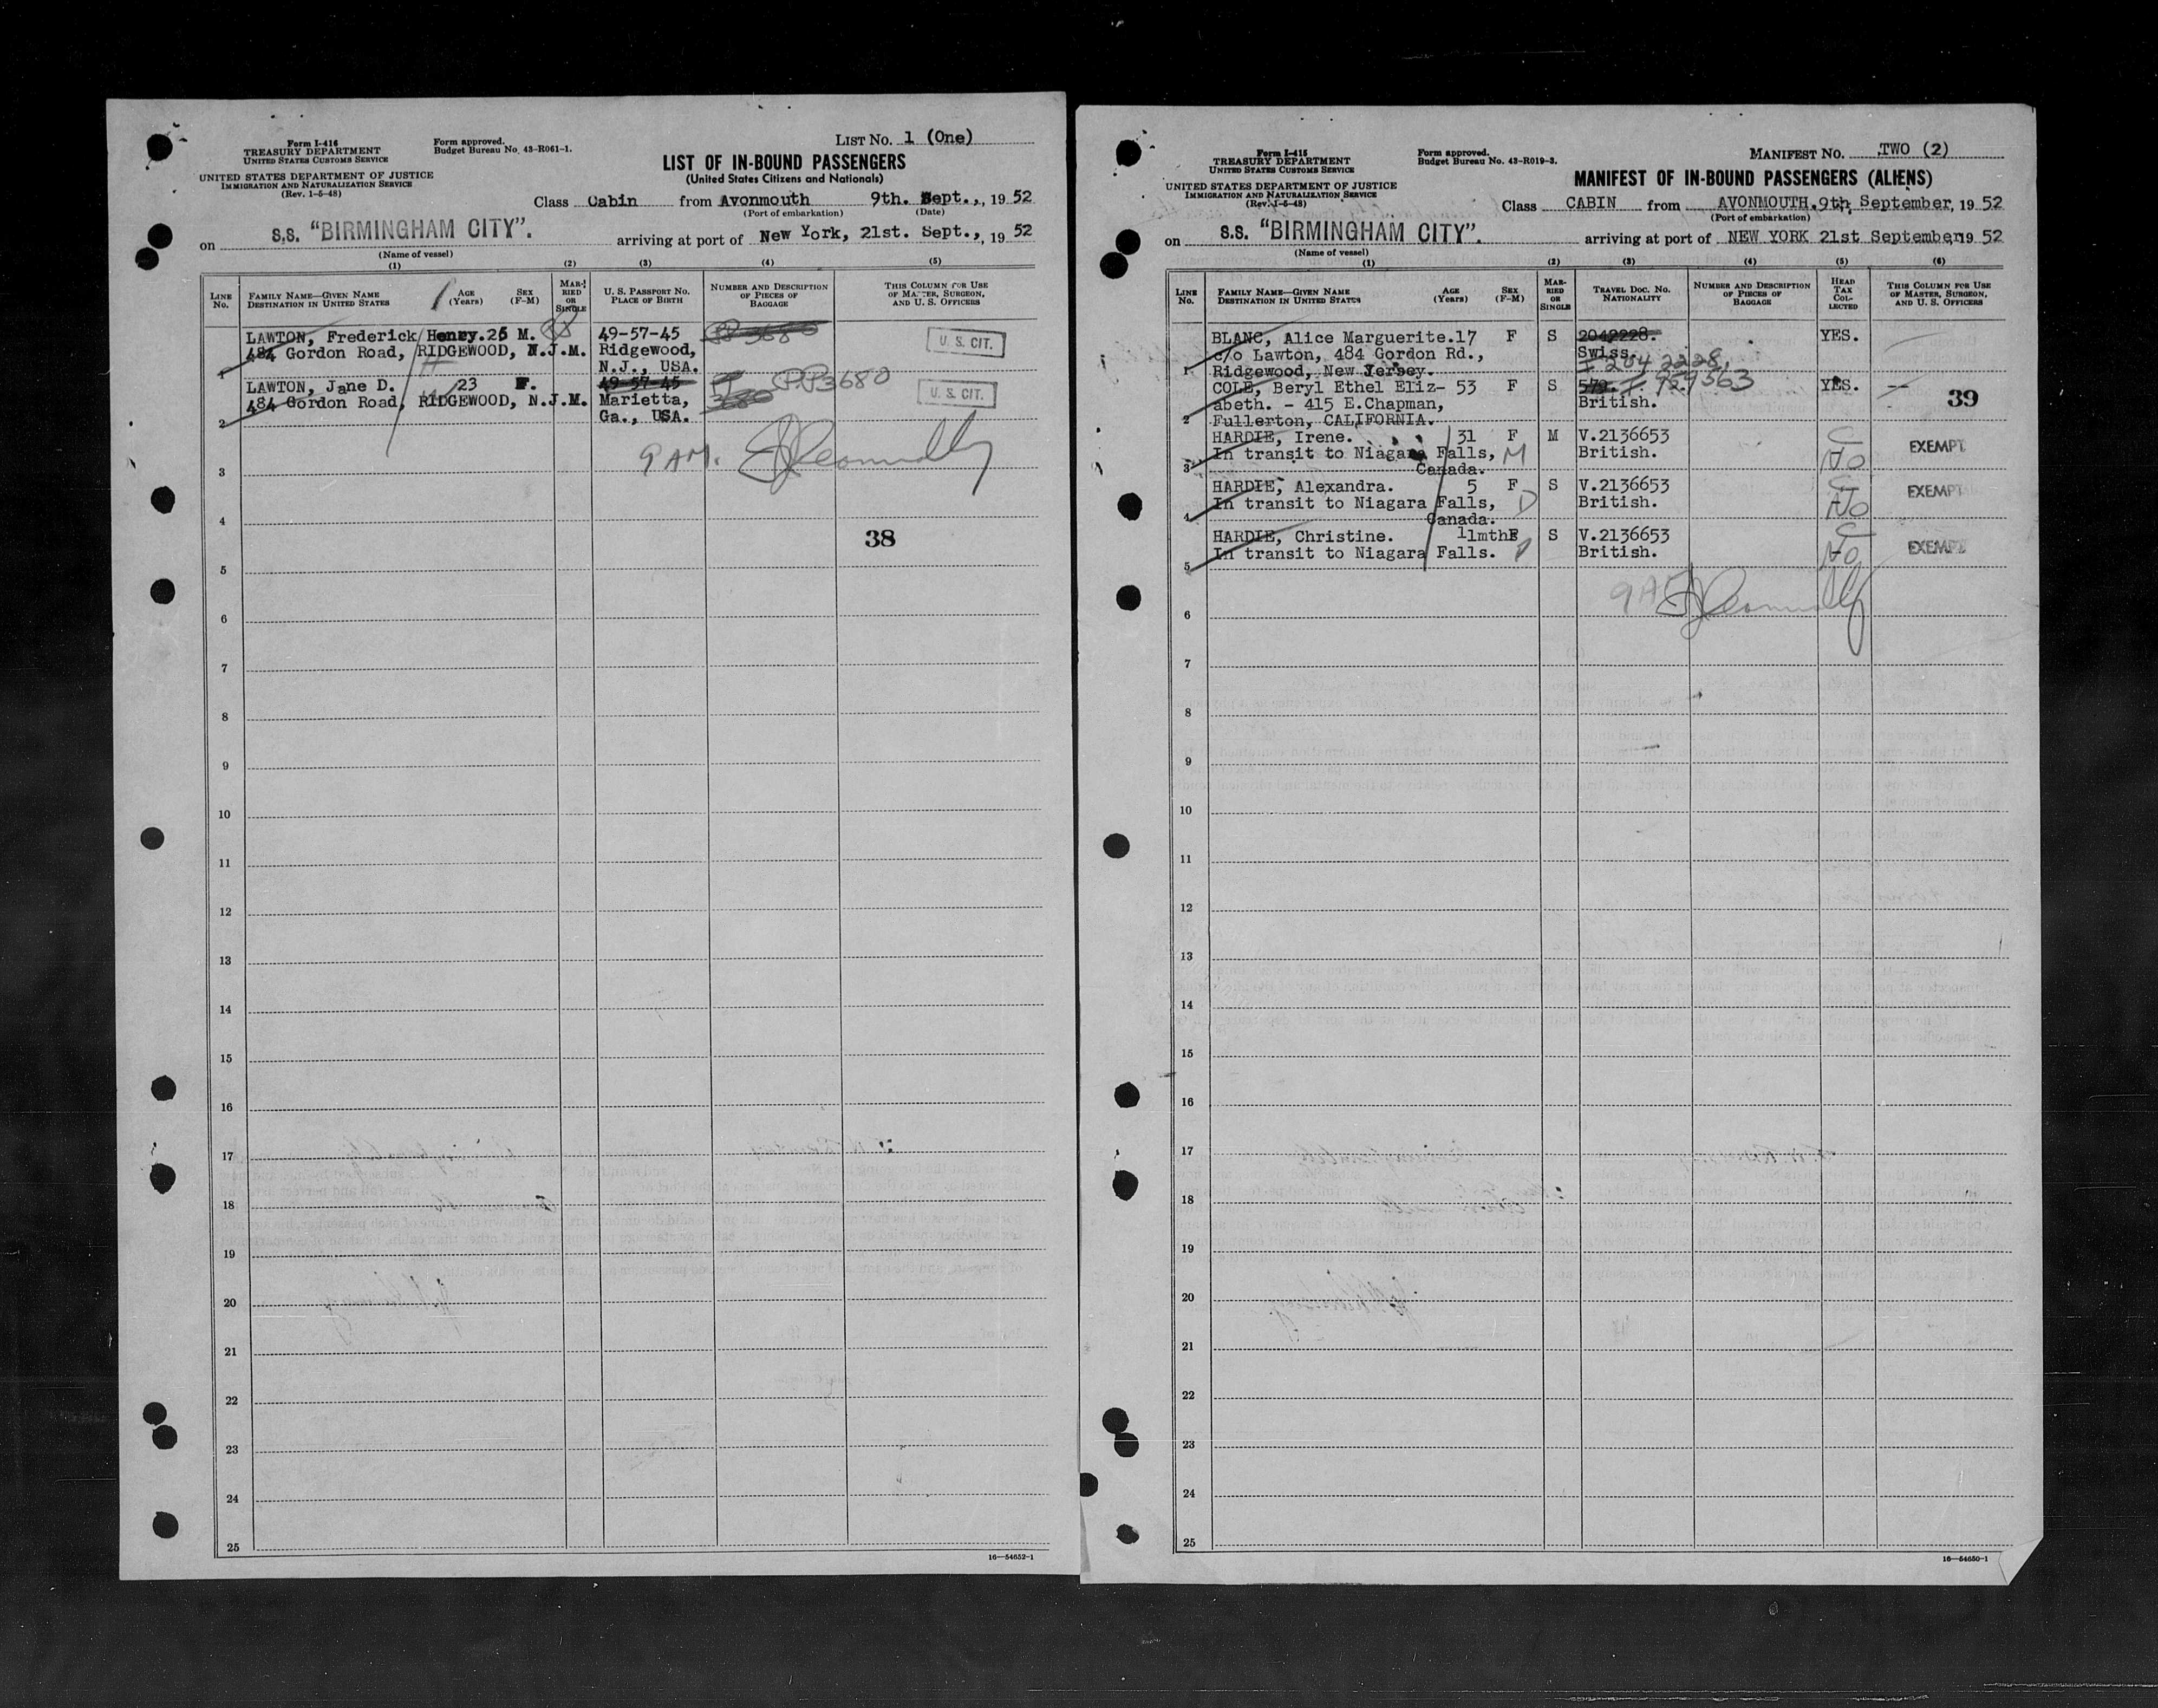 Form I-416
TREASURY DEPARTMENT
UNITED STATES CUSTOMS SERVICE
UNITED STATES DEPARTMENT OF JUSTICE
IMMIGRATION AND NATURALIZATION SERVICE
(Rev. 1-5-48)
Form approved.
Budget Bureau No. 43-R061-1.
LIST No. 1 (One)
LIST OF IN-BOUND PASSENGERS
(United States Citizens and Nationals)
Class Cabin from Avonmouth 9th. Sept., 1952
(Port of embarkation) (Date)
on S.S. "BIRMINGHAM CITY". arriving at port of New York, 21st. Sept., 1952
(Name of vessel)
(1) (2) (3) (4) (5)
LINE No.
FAMILY NAME—GIVEN NAME
DESTINATION IN UNITED STATES
AGE (Years)
SEX (F-M)
MARRIED OR SINGLE
U. S. PASSPORT No.
PLACE OF BIRTH
NUMBER AND DESCRIPTION OF PIECES OF BAGGAGE
THIS COLUMN FOR USE OF MASTER, SURGEON, AND U. S. OFFICERS
LAWTON, Frederick Henry. 26 M. 49-57-45 U. S. CIT.
484 Gordon Road, RIDGEWOOD, N.J. M. Ridgewood,
1 N.J., USA.
LAWTON, Jane D. 23 F. 49-57-45 PP3680 U. S. CIT.
484 Gordon Road, RIDGEWOOD, N.J. M. Marietta,
2 Ga., USA.
9 AM.
3
4
38
5
6
7
8
9
10
11
12
13
14
15
16
17
18
19
20
21
22
23
24
25
16—54652-1
Form I-415
TREASURY DEPARTMENT
UNITED STATES CUSTOMS SERVICE
UNITED STATES DEPARTMENT OF JUSTICE
IMMIGRATION AND NATURALIZATION SERVICE
(Rev. 1-5-48)
Form approved.
Budget Bureau No. 43-R019-3.
MANIFEST No. TWO (2)
MANIFEST OF IN-BOUND PASSENGERS (ALIENS)
Class CABIN from AVONMOUTH. 9th September, 1952
(Port of embarkation)
on S.S. "BIRMINGHAM CITY". arriving at port of NEW YORK 21st September 1952
(Name of vessel)
(1) (2) (3) (4) (5) (6)
LINE No.
FAMILY NAME—GIVEN NAME
DESTINATION IN UNITED STATES
AGE (Years)
SEX (F-M)
MARRIED OR SINGLE
TRAVEL DOC. No.
NATIONALITY
NUMBER AND DESCRIPTION OF PIECES OF BAGGAGE
HEAD TAX COLLECTED
THIS COLUMN FOR USE OF MASTER, SURGEON, AND U. S. OFFICERS
BLANC, Alice Marguerite. 17 F S 2042228. YES.
c/o Lawton, 484 Gordon Rd., Swiss.
1 Ridgewood, New Jersey. I-2042228,
COLE, Beryl Ethel Eliz- 53 F S 579. I-959563 YES.
abeth. - 415 E.Chapman, British. 39
2 Fullerton, CALIFORNIA.
HARDIE, Irene. 31 F M V.2136653
In transit to Niagara Falls, M British. No EXEMPT
3 Canada.
HARDIE, Alexandra. 5 F S V.2136653 EXEMPT
In transit to Niagara Falls, D British. No
4 Canada.
HARDIE, Christine. 11mths F S V.2136653
In transit to Niagara Falls. D British. No EXEMPT
5
9 AM
6
7
8
9
10
11
12
13
14
15
16
17
18
19
20
21
22
23
24
25
16—54650-1